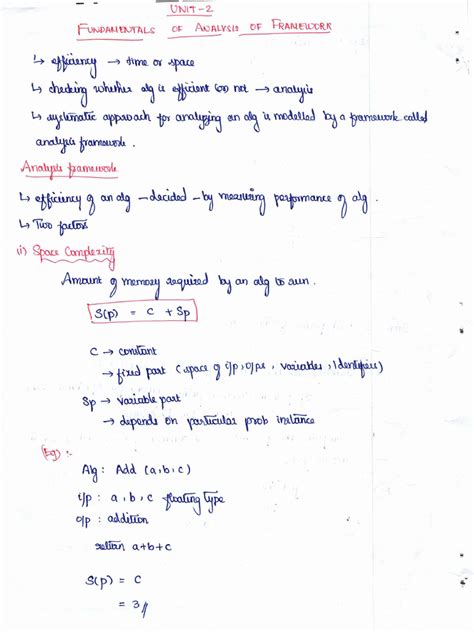 UNIT-2
FUNDAMENTALS OF ANALYSIS OF FRAMEWORK
↳ efficiency → time or space
↳ checking whether alg is efficient (or) not → analysis
↳ systematic approach for analyzing an alg is modelled by a framework called
analysis framework.
Analysis framework
↳ efficiency of an alg – decided – by measuring performance of alg.
↳ Two factors
(i) Space Complexity
Amount of memory required by an alg to run.
S(p) = C + Sp
C → constant
→ fixed part (space of i/p, o/ps, variables, Identifiers)
Sp → variable part
→ depends on particular prob instance
(Eg) :-
Alg : Add (a, b, c)
i/p : a, b, c floating type
o/p : addition
return a+b+c
S(p) = C
= 3//